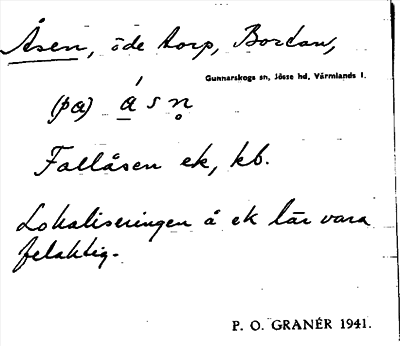 Åsen, öde torp, Bordan,
Gunnarskogs sn, Jösse hd, Värmlands l.
(på) á s n̥
Fallåsen ek, kb.
Lokaliseringen å ek lär vara
felaktig.
P. O. GRANÉR 1941.